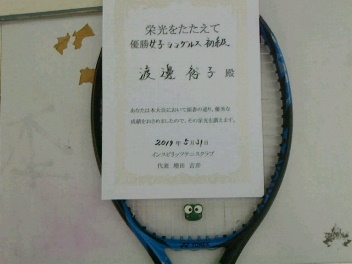 栄光をたたえて
優勝 女子シングルス 初級
渡邊裕子 殿
あなたは本大会において頭書の通り、優秀な
成績をおさめましたので、その栄光を讃えます。
2019年5月31日
インスピリッツテニスクラブ
代表
YONEX